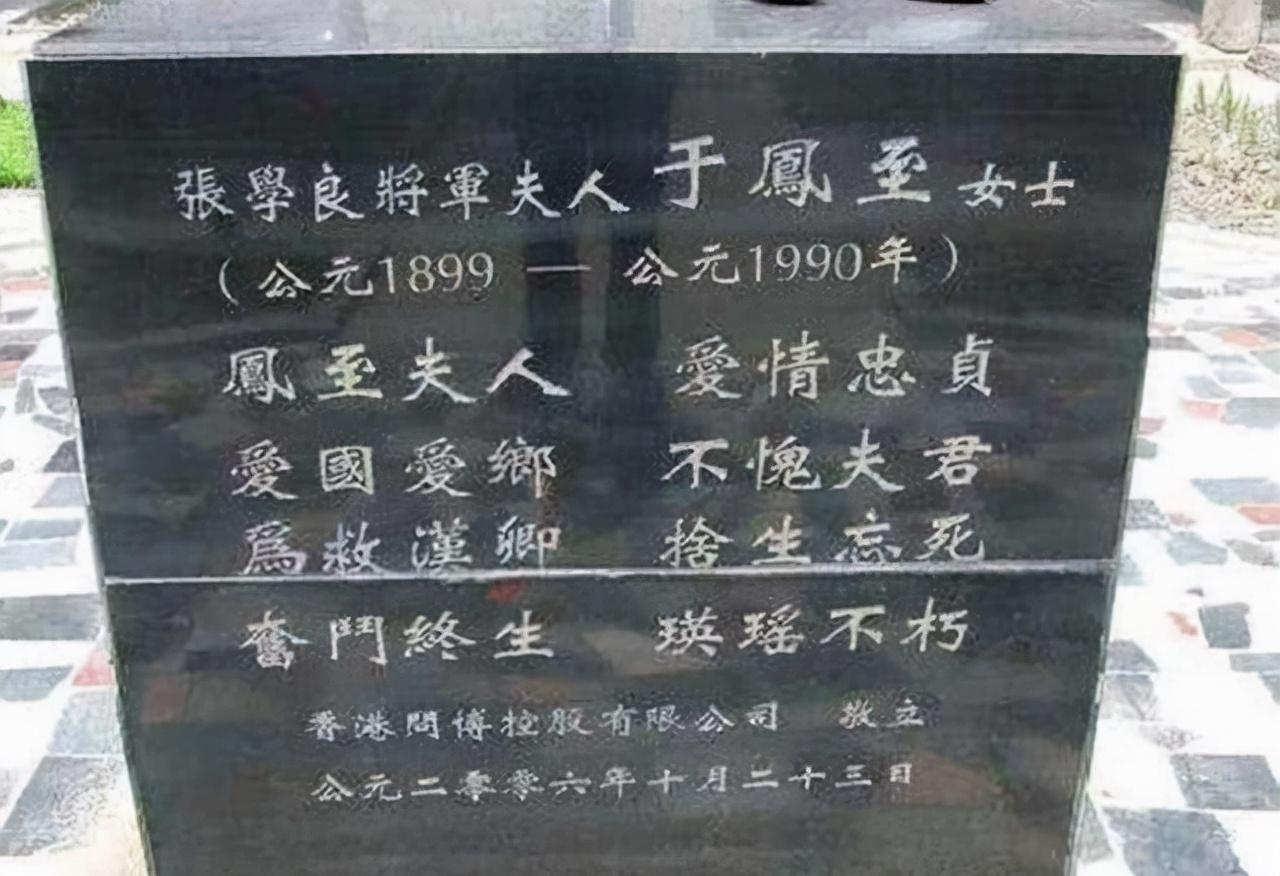 張學良將軍夫人于鳳至女士
(公元1899 — 公元1990年)
鳳至夫人 愛情忠貞
愛國愛鄉 不愧夫君
爲救漢卿 捨生忘死
奮鬥終生 瑛瑶不朽
香港問博控股有限公司 敬立
公元二零零六年十月二十三日